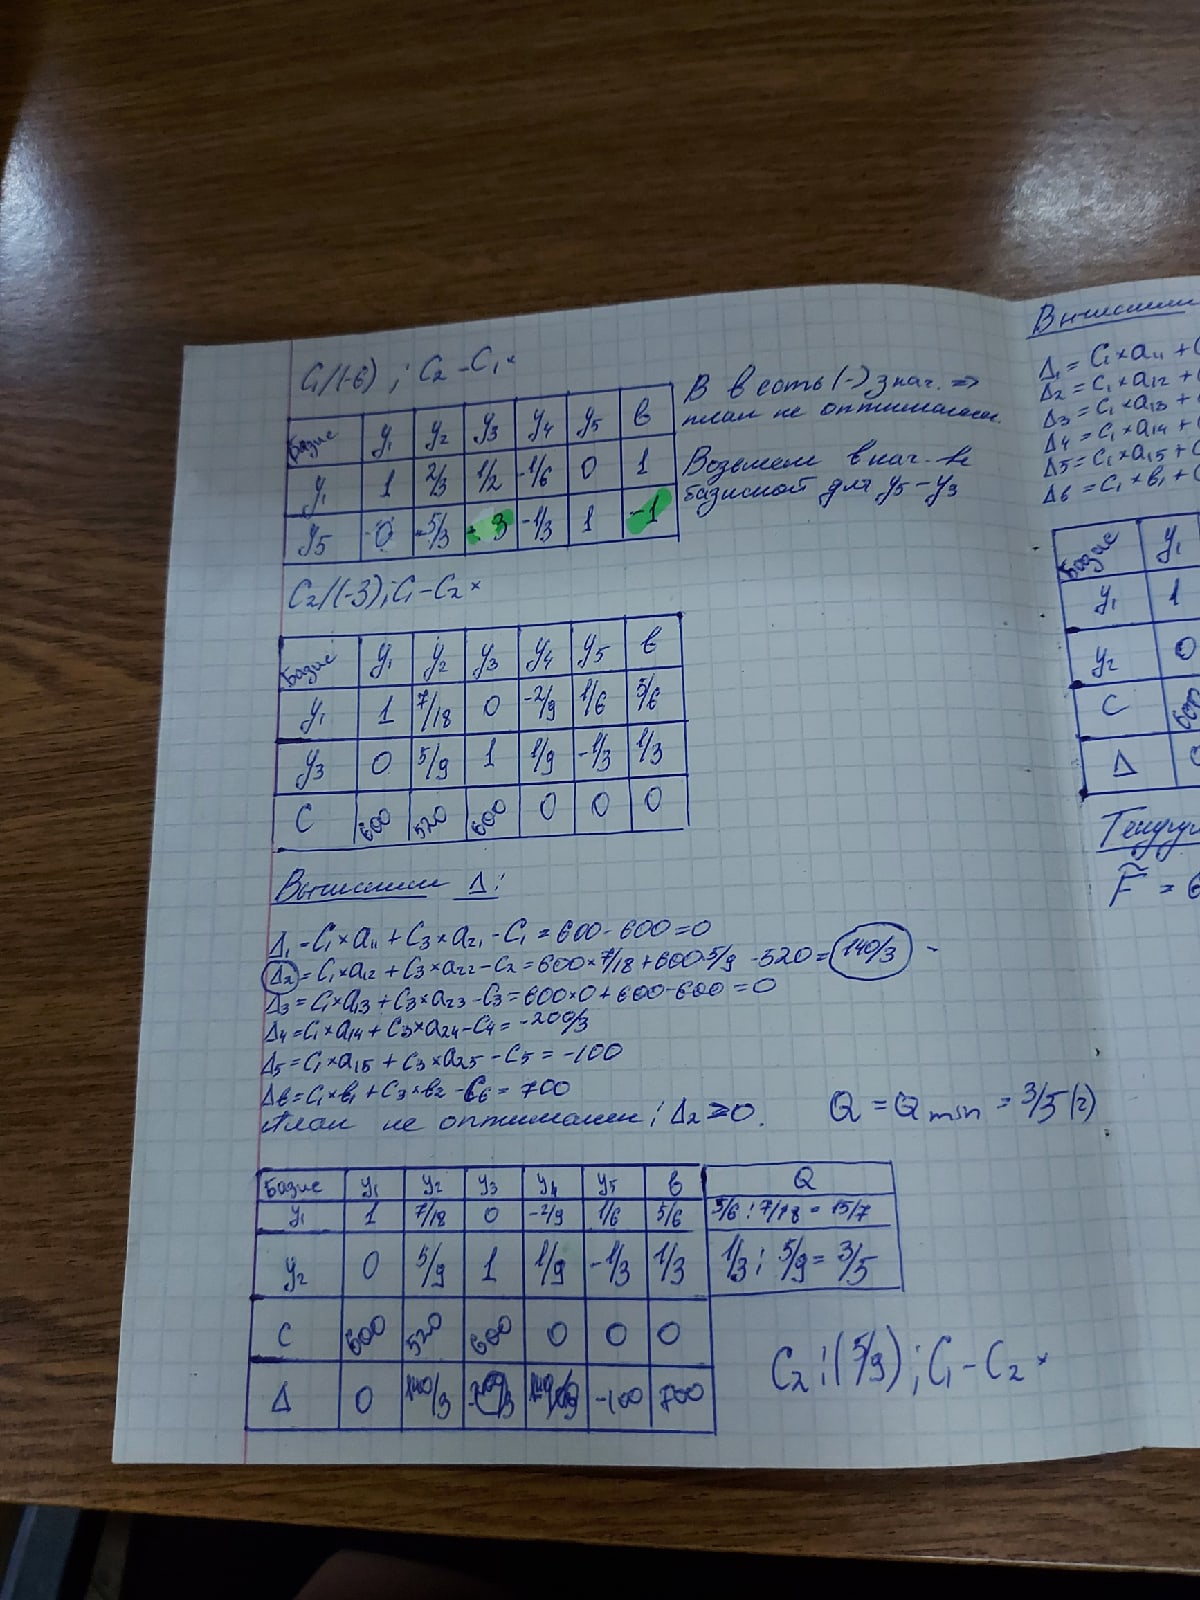 C₁/(-6) ; C₂ - C₁ ×
Базис y₁ y₂ y₃ y₄ y₅ в
y₁ 1 2/3 1/2 -1/6 0 1
y₅ 0 -5/3 -3 -1/3 1 -1
В в есть (-) знач. =>
план не оптимален.
Возьмем в кач.
базисной для y₅ - y₃
C₂/(-3) ; C₁ - C₂ ×
Базис y₁ y₂ y₃ y₄ y₅ в
y₁ 1 7/18 0 -2/9 1/6 5/6
y₃ 0 5/9 1 1/9 -1/3 1/3
C 600 520 600 0 0 0
Вычислим Δ:
Δ₁ = C₁×a₁₁ + C₃×a₂₁ - C₁ = 600 - 600 = 0
Δ₂ = C₁×a₁₂ + C₃×a₂₂ - C₂ = 600×7/18 + 600·5/9 - 520 = 140/3
Δ₃ = C₁×a₁₃ + C₃×a₂₃ - C₃ = 600×0 + 600 - 600 = 0
Δ₄ = C₁×a₁₄ + C₃×a₂₄ - C₄ = -200/3
Δ₅ = C₁×a₁₅ + C₃×a₂₅ - C₅ = -100
Δ₆ = C₁×в₁ + C₃×в₂ - C₆ = 700
План не оптимален ; Δ₂ ≥ 0.
Q = Q min = 3/5 (2)
Базис y₁ y₂ y₃ y₄ y₅ в Q
y₁ 1 7/18 0 -2/9 1/6 5/6 5/6 : 7/18 = 15/7
y₂ 0 5/9 1 1/9 -1/3 1/3 1/3 : 5/9 = 3/5
C 600 520 600 0 0 0
Δ 0 140/3 -100 700
C₂ : (5/9) ; C₁ - C₂ ×
Вычислим
Δ₁ = C₁×a₁₁ + C
Δ₂ = C₁×a₁₂ +
Δ₃ = C₁×a₁₃ +
Δ₄ = C₁×a₁₄ +
Δ₅ = C₁×a₁₅ + C
Δ₆ = C₁×в₁ + C
Базис y₁
y₁ 1
y₂ 0
C
Δ
F̃ = 6